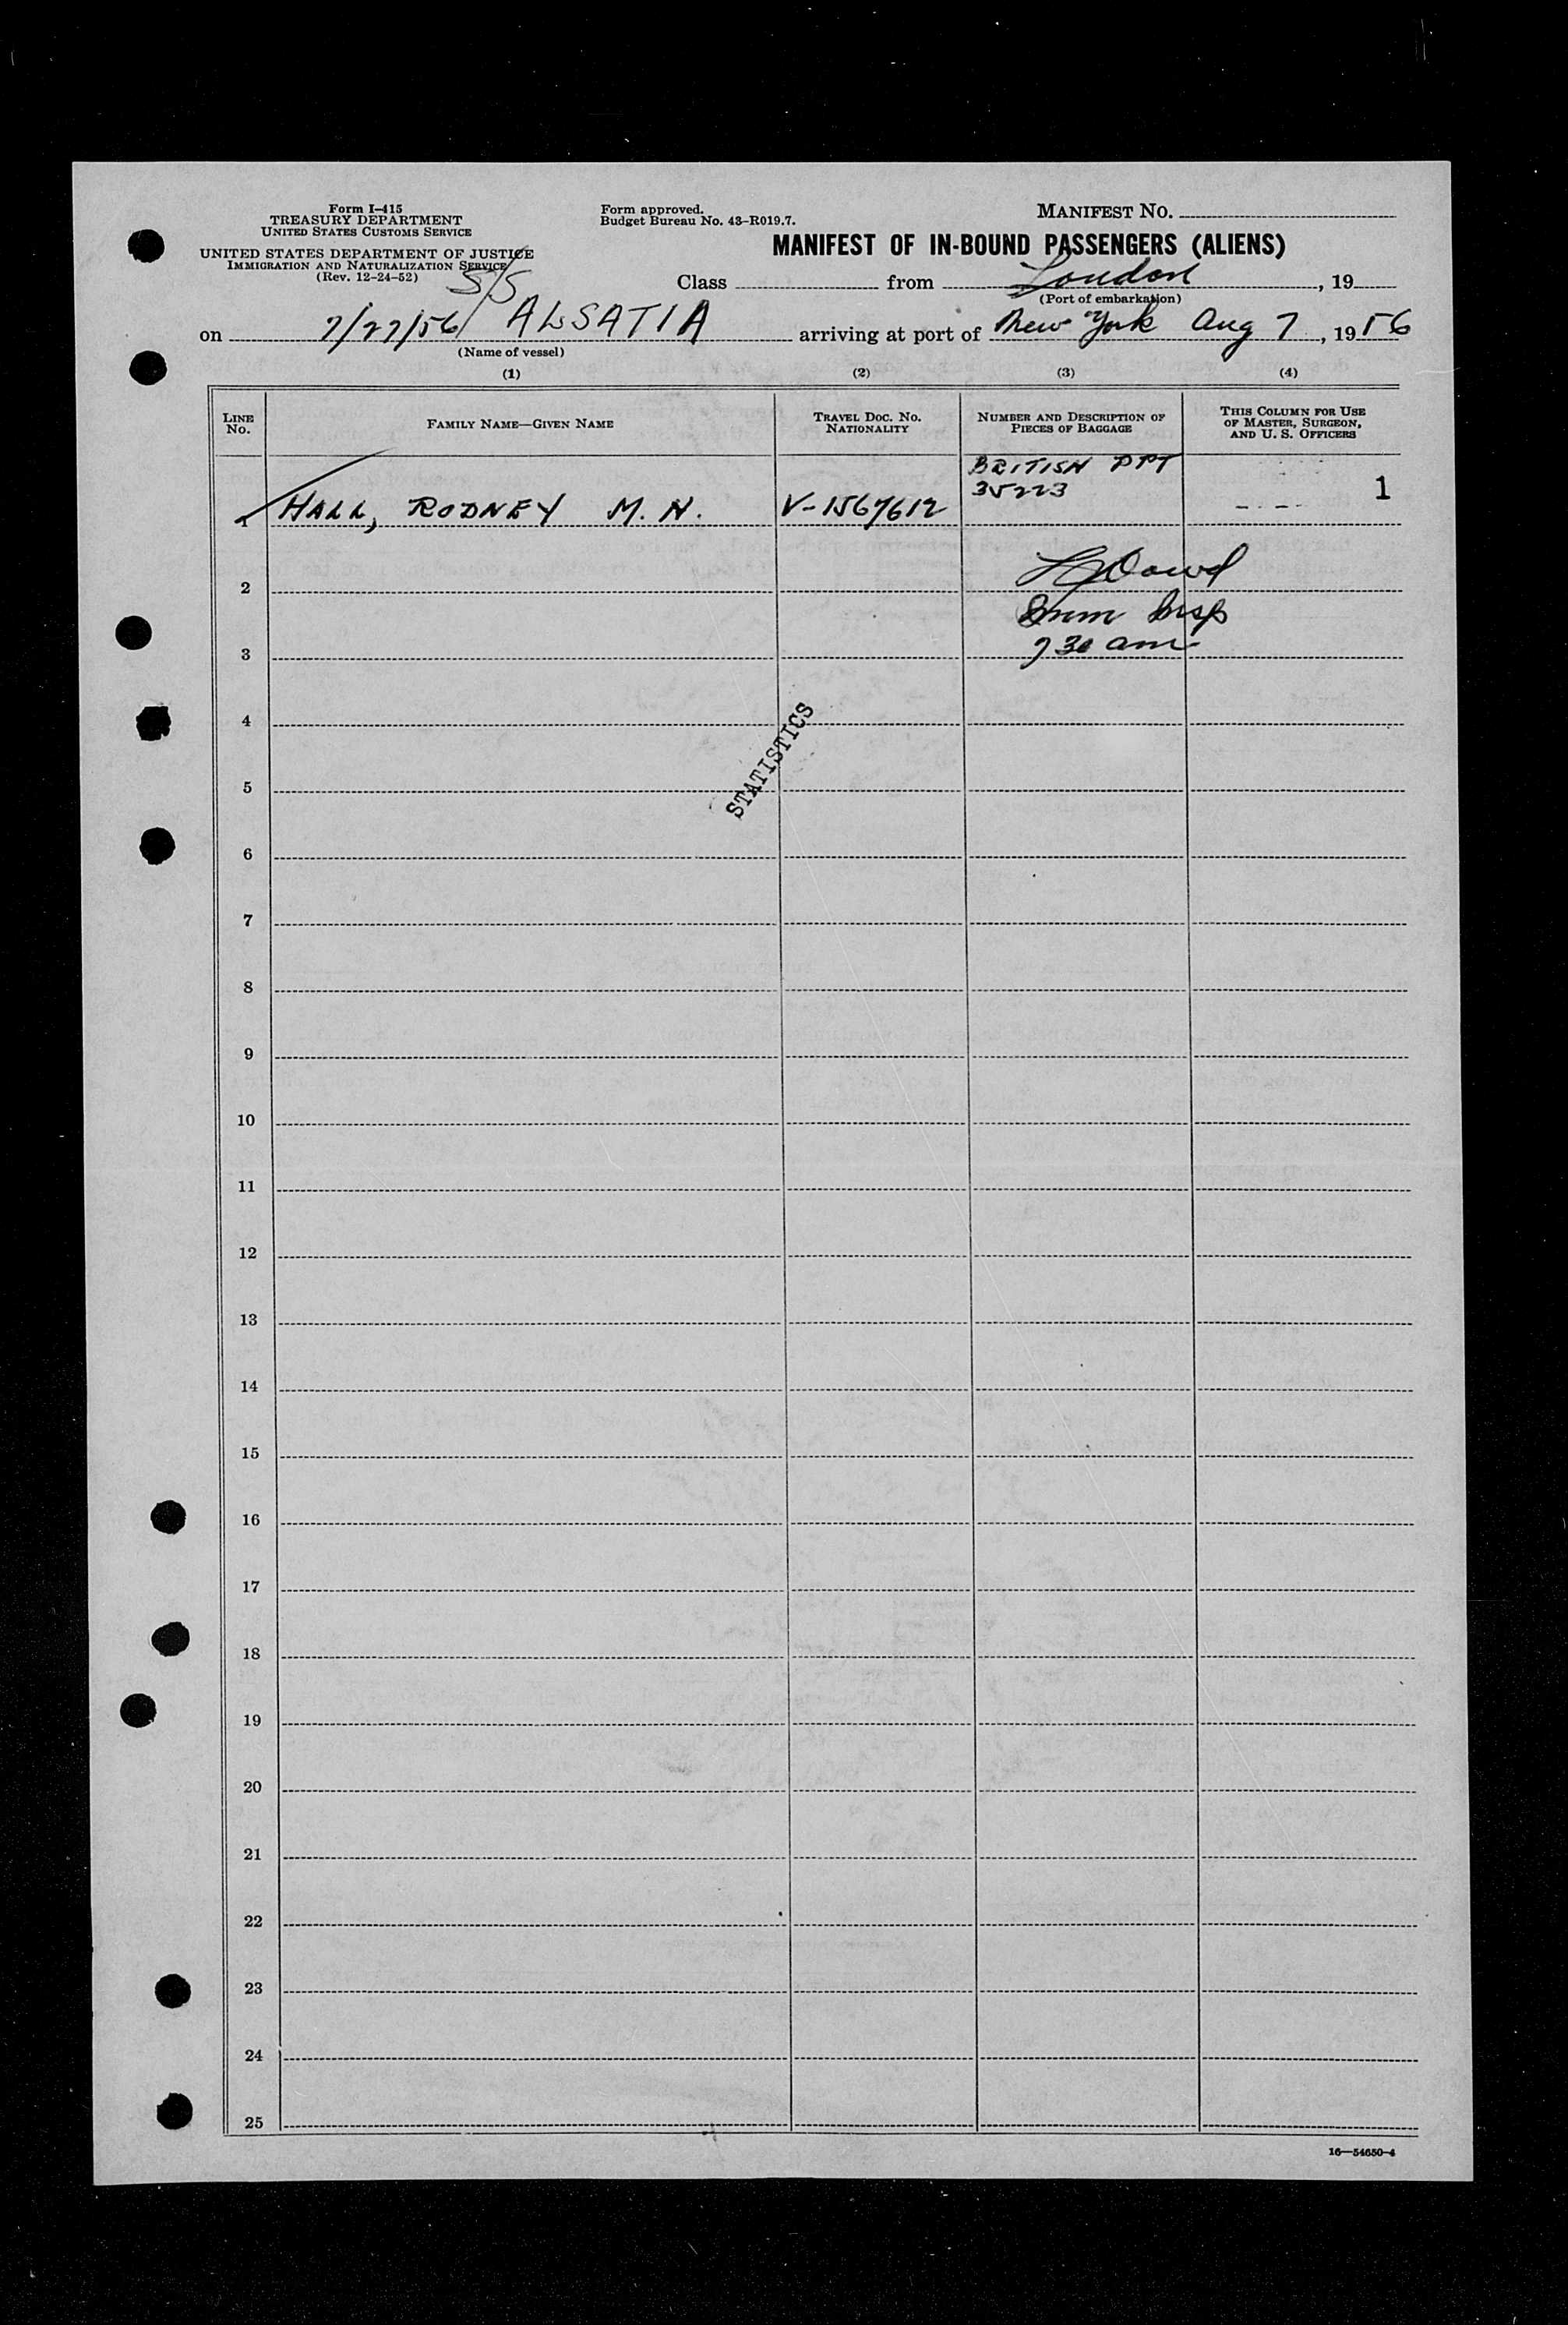 Form I-415
TREASURY DEPARTMENT
UNITED STATES CUSTOMS SERVICE
UNITED STATES DEPARTMENT OF JUSTICE
IMMIGRATION AND NATURALIZATION SERVICE
(Rev. 12-24-52)
Form approved.
Budget Bureau No. 43-R019.7.
MANIFEST NO.
MANIFEST OF IN-BOUND PASSENGERS (ALIENS)
Class from London, 19
(Port of embarkation)
on 7/27/56 S/S ALSATIA arriving at port of New York Aug 7, 1956
(Name of vessel)
(1) (2) (3) (4)
LINE No.
FAMILY NAME—GIVEN NAME
TRAVEL DOC. NO. NATIONALITY
NUMBER AND DESCRIPTION OF PIECES OF BAGGAGE
THIS COLUMN FOR USE OF MASTER, SURGEON, AND U. S. OFFICERS
BRITISH PPT
35223
1 HALL, RODNEY M. N. V-1567612 1
Dowd
2
Imm Insp
3
7 30 am
STATISTICS
4
5
6
7
8
9
10
11
12
13
14
15
16
17
18
19
20
21
22
23
24
25
16—54650-4